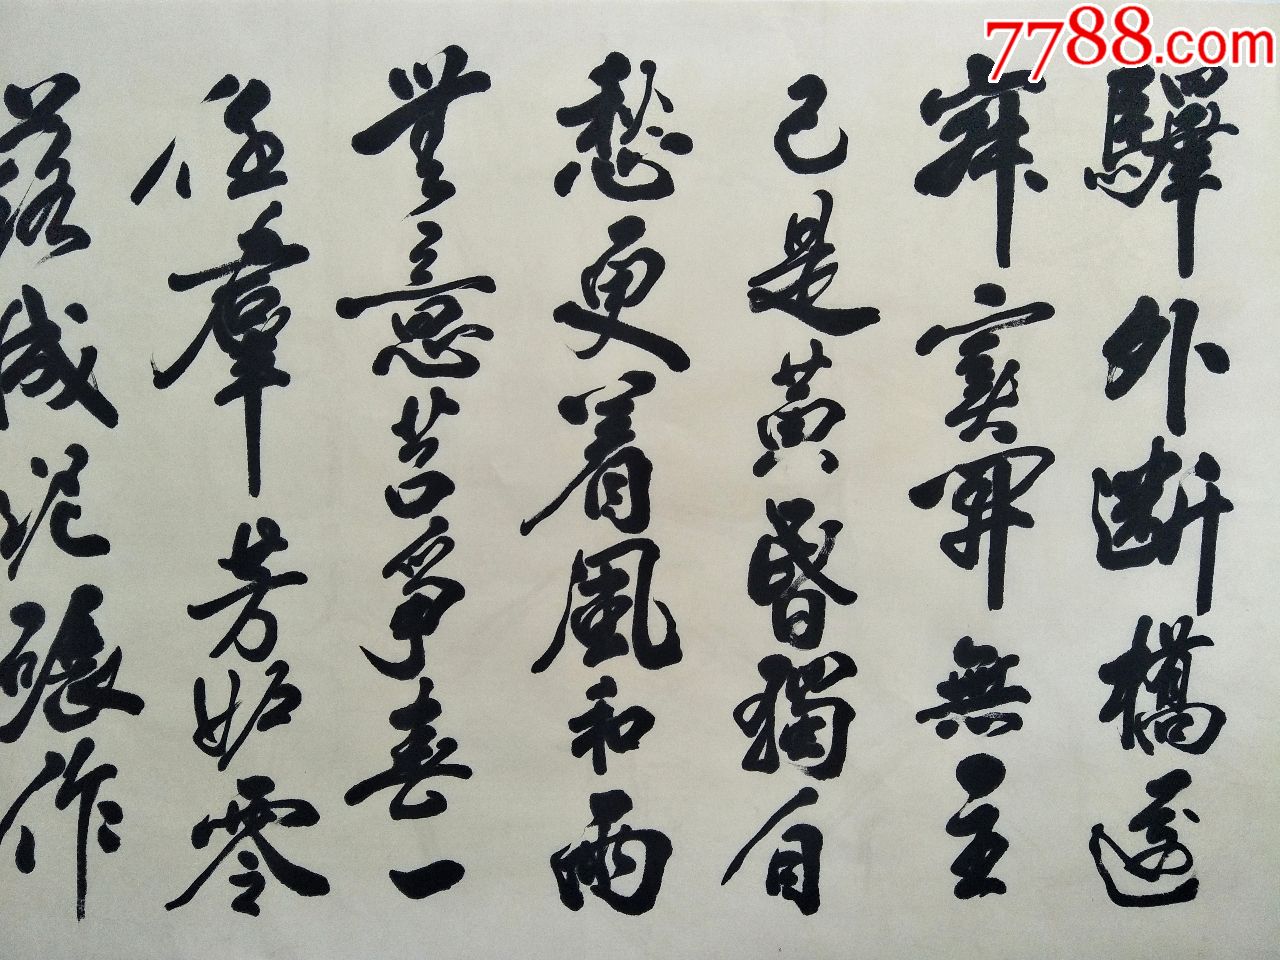 7788.com
驛外斷橋邊
寂寞開無主
已是黃昏獨自
愁更着風和雨
無意苦爭春一
任羣芳妒零
落成泥碾作